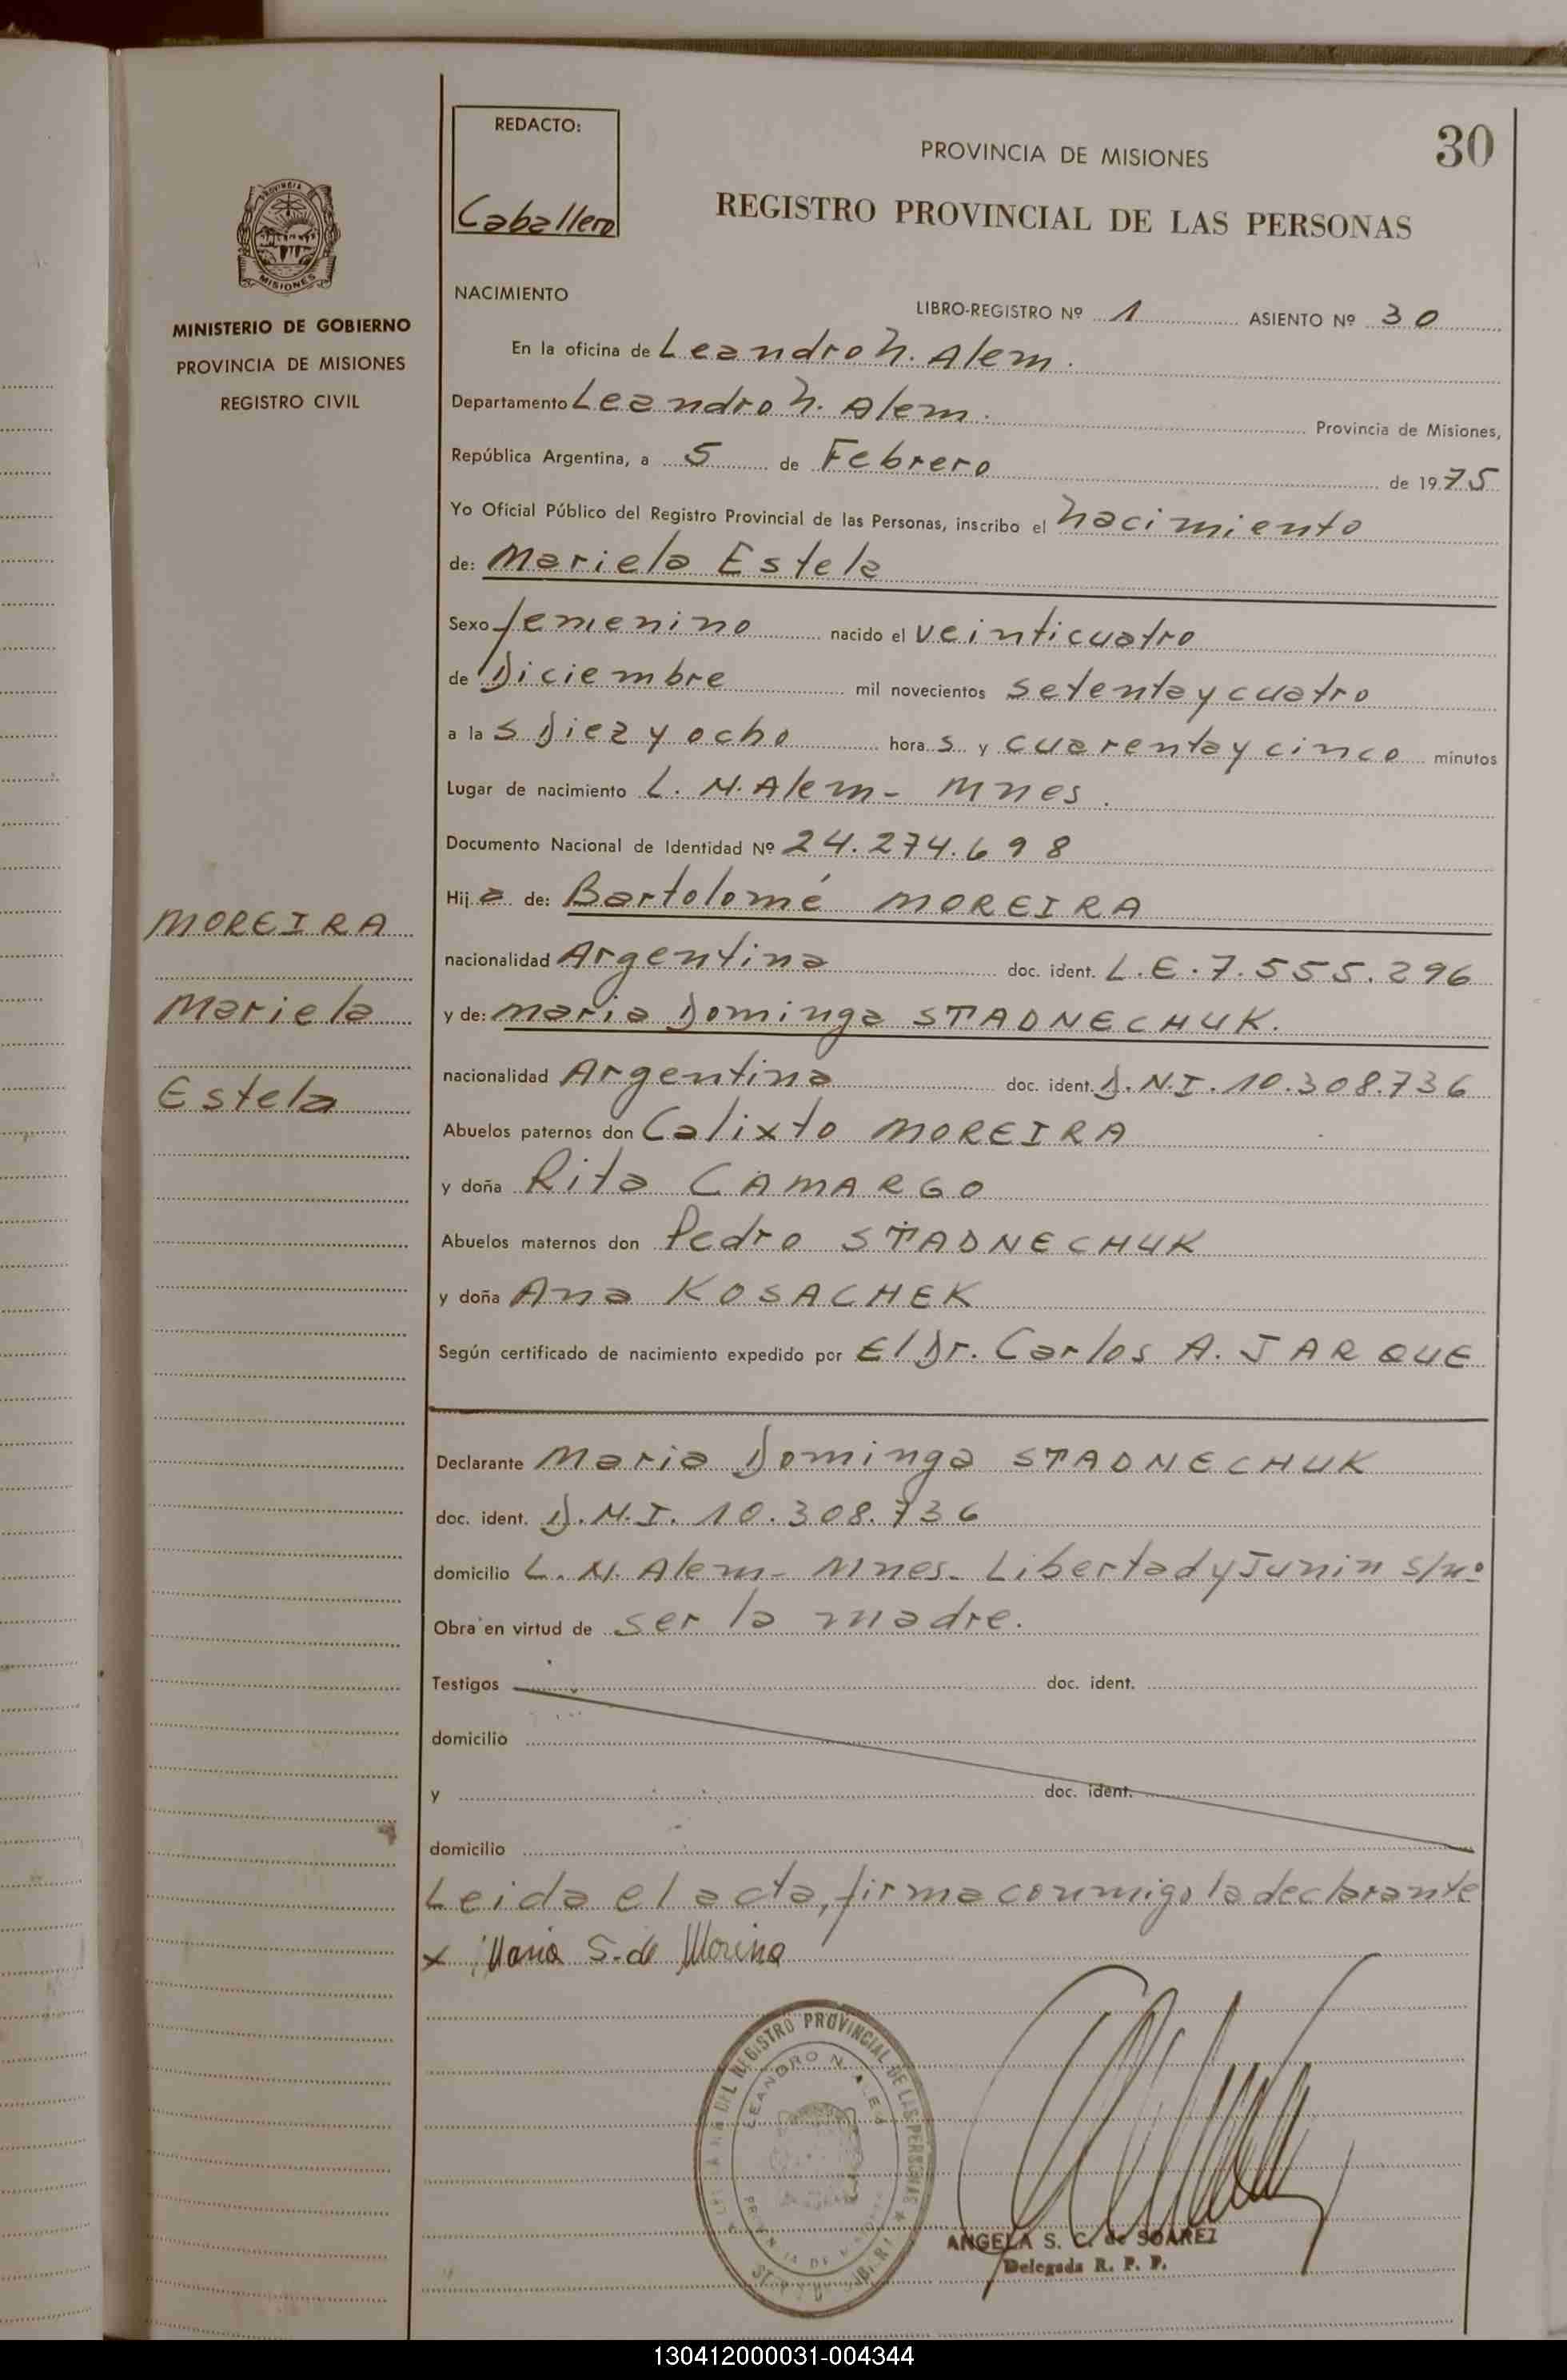 REDACTO:
Caballero
30
PROVINCIA DE MISIONES
REGISTRO PROVINCIAL DE LAS PERSONAS
MISIONES
MINISTERIO DE GOBIERNO
PROVINCIA DE MISIONES
REGISTRO CIVIL
NACIMIENTO
LIBRO-REGISTRO Nº 1 ASIENTO Nº 30
En la oficina de Leandro N. Alem.
Departamento Leandro N. Alem. Provincia de Misiones,
República Argentina, a 5 de Febrero de 1975
Yo Oficial Público del Registro Provincial de las Personas, inscribo el nacimiento
de: Mariela Estela
Sexo femenino nacido el veinticuatro
de Diciembre mil novecientos setenta y cuatro
a las Diez y ocho horas y cuarenta y cinco minutos
Lugar de nacimiento L. N. Alem - Mnes.
Documento Nacional de Identidad Nº 24.274.698
Hija de: Bartolomé MOREIRA
nacionalidad Argentina doc. ident. L.E. 7.555.296
y de: Maria Dominga STADNECHUK.
nacionalidad Argentina doc. ident. D.N.I. 10.308.736
Abuelos paternos don Calixto MOREIRA
y doña Rita CAMARGO
Abuelos maternos don Pedro STADNECHUK
y doña Ana KOSACHEK
Según certificado de nacimiento expedido por El Dr. Carlos A. JARQUE
MOREIRA
Mariela
Estela
Declarante Maria Dominga STADNECHUK
doc. ident. D.N.I. 10.308.736
domicilio L. N. Alem - Mnes - Libertad y Junin s/nº
Obra en virtud de ser la madre.
Testigos doc. ident.
domicilio
y doc. ident.
domicilio
Leida el acta, firma conmigo la declarante
x Maria S. de
DEL REGISTRO PROVINCIAL DE LAS PERSONAS
LEANDRO N. ALEM
ANGELA S. C. de SOAREZ
Delegada R. P. P.
130412000031-004344